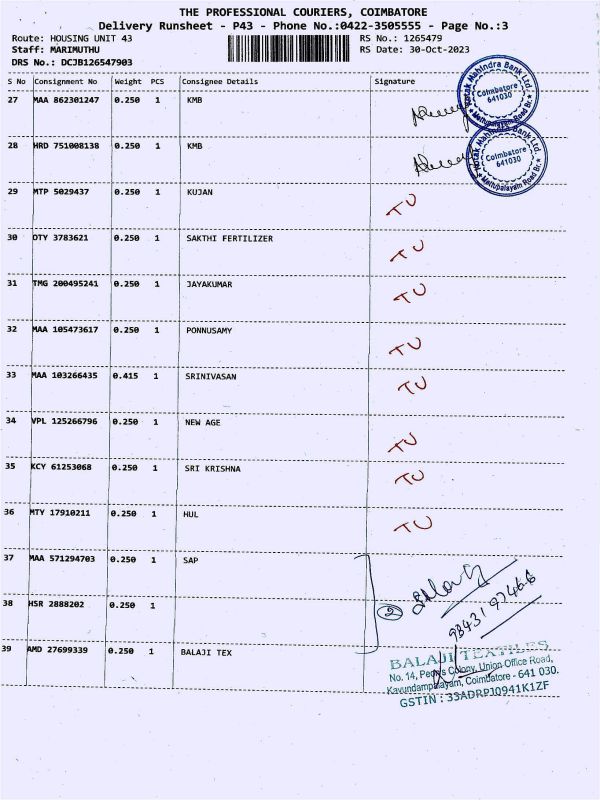 THE PROFESSIONAL COURIERS, COIMBATORE
Delivery Runsheet - P43 - Phone No.:0422-3505555 - Page No.:3
Route: HOUSING UNIT 43 RS No.: 1265479
Staff: MARIMUTHU RS Date: 30-Oct-2023
DRS No.: DCJB126547903
S No Consignment No Weight PCS Consignee Details Signature
27 MAA 862301247 0.250 1 KMB
Kotak Mahindra Bank Ltd.
Coimbatore
641030
Mettupalayam Road Br.
28 HRD 751008138 0.250 1 KMB
Kotak Mahindra Bank Ltd.
Coimbatore
641030
Mettupalayam Road Br.
29 MTP 5029437 0.250 1 KUJAN TU
30 OTY 3783621 0.250 1 SAKTHI FERTILIZER TU
31 TMG 200495241 0.250 1 JAYAKUMAR TU
32 MAA 105473617 0.250 1 PONNUSAMY TU
33 MAA 103266435 0.415 1 SRINIVASAN TU
34 VPL 125266796 0.250 1 NEW AGE TU
35 KCY 61253068 0.250 1 SRI KRISHNA TU
36 MTY 17910211 0.250 1 HUL TU
37 MAA 571294703 0.250 1 SAP
38 HSR 2888202 0.250 1 2
39 AMD 27699339 0.250 1 BALAJI TEX
BALAJI TEXTILES
No. 14, People's Colony, Union Office Road,
Kavundampalayam, Coimbatore - 641 030.
GSTIN : 33ADRPJ0941K1ZF